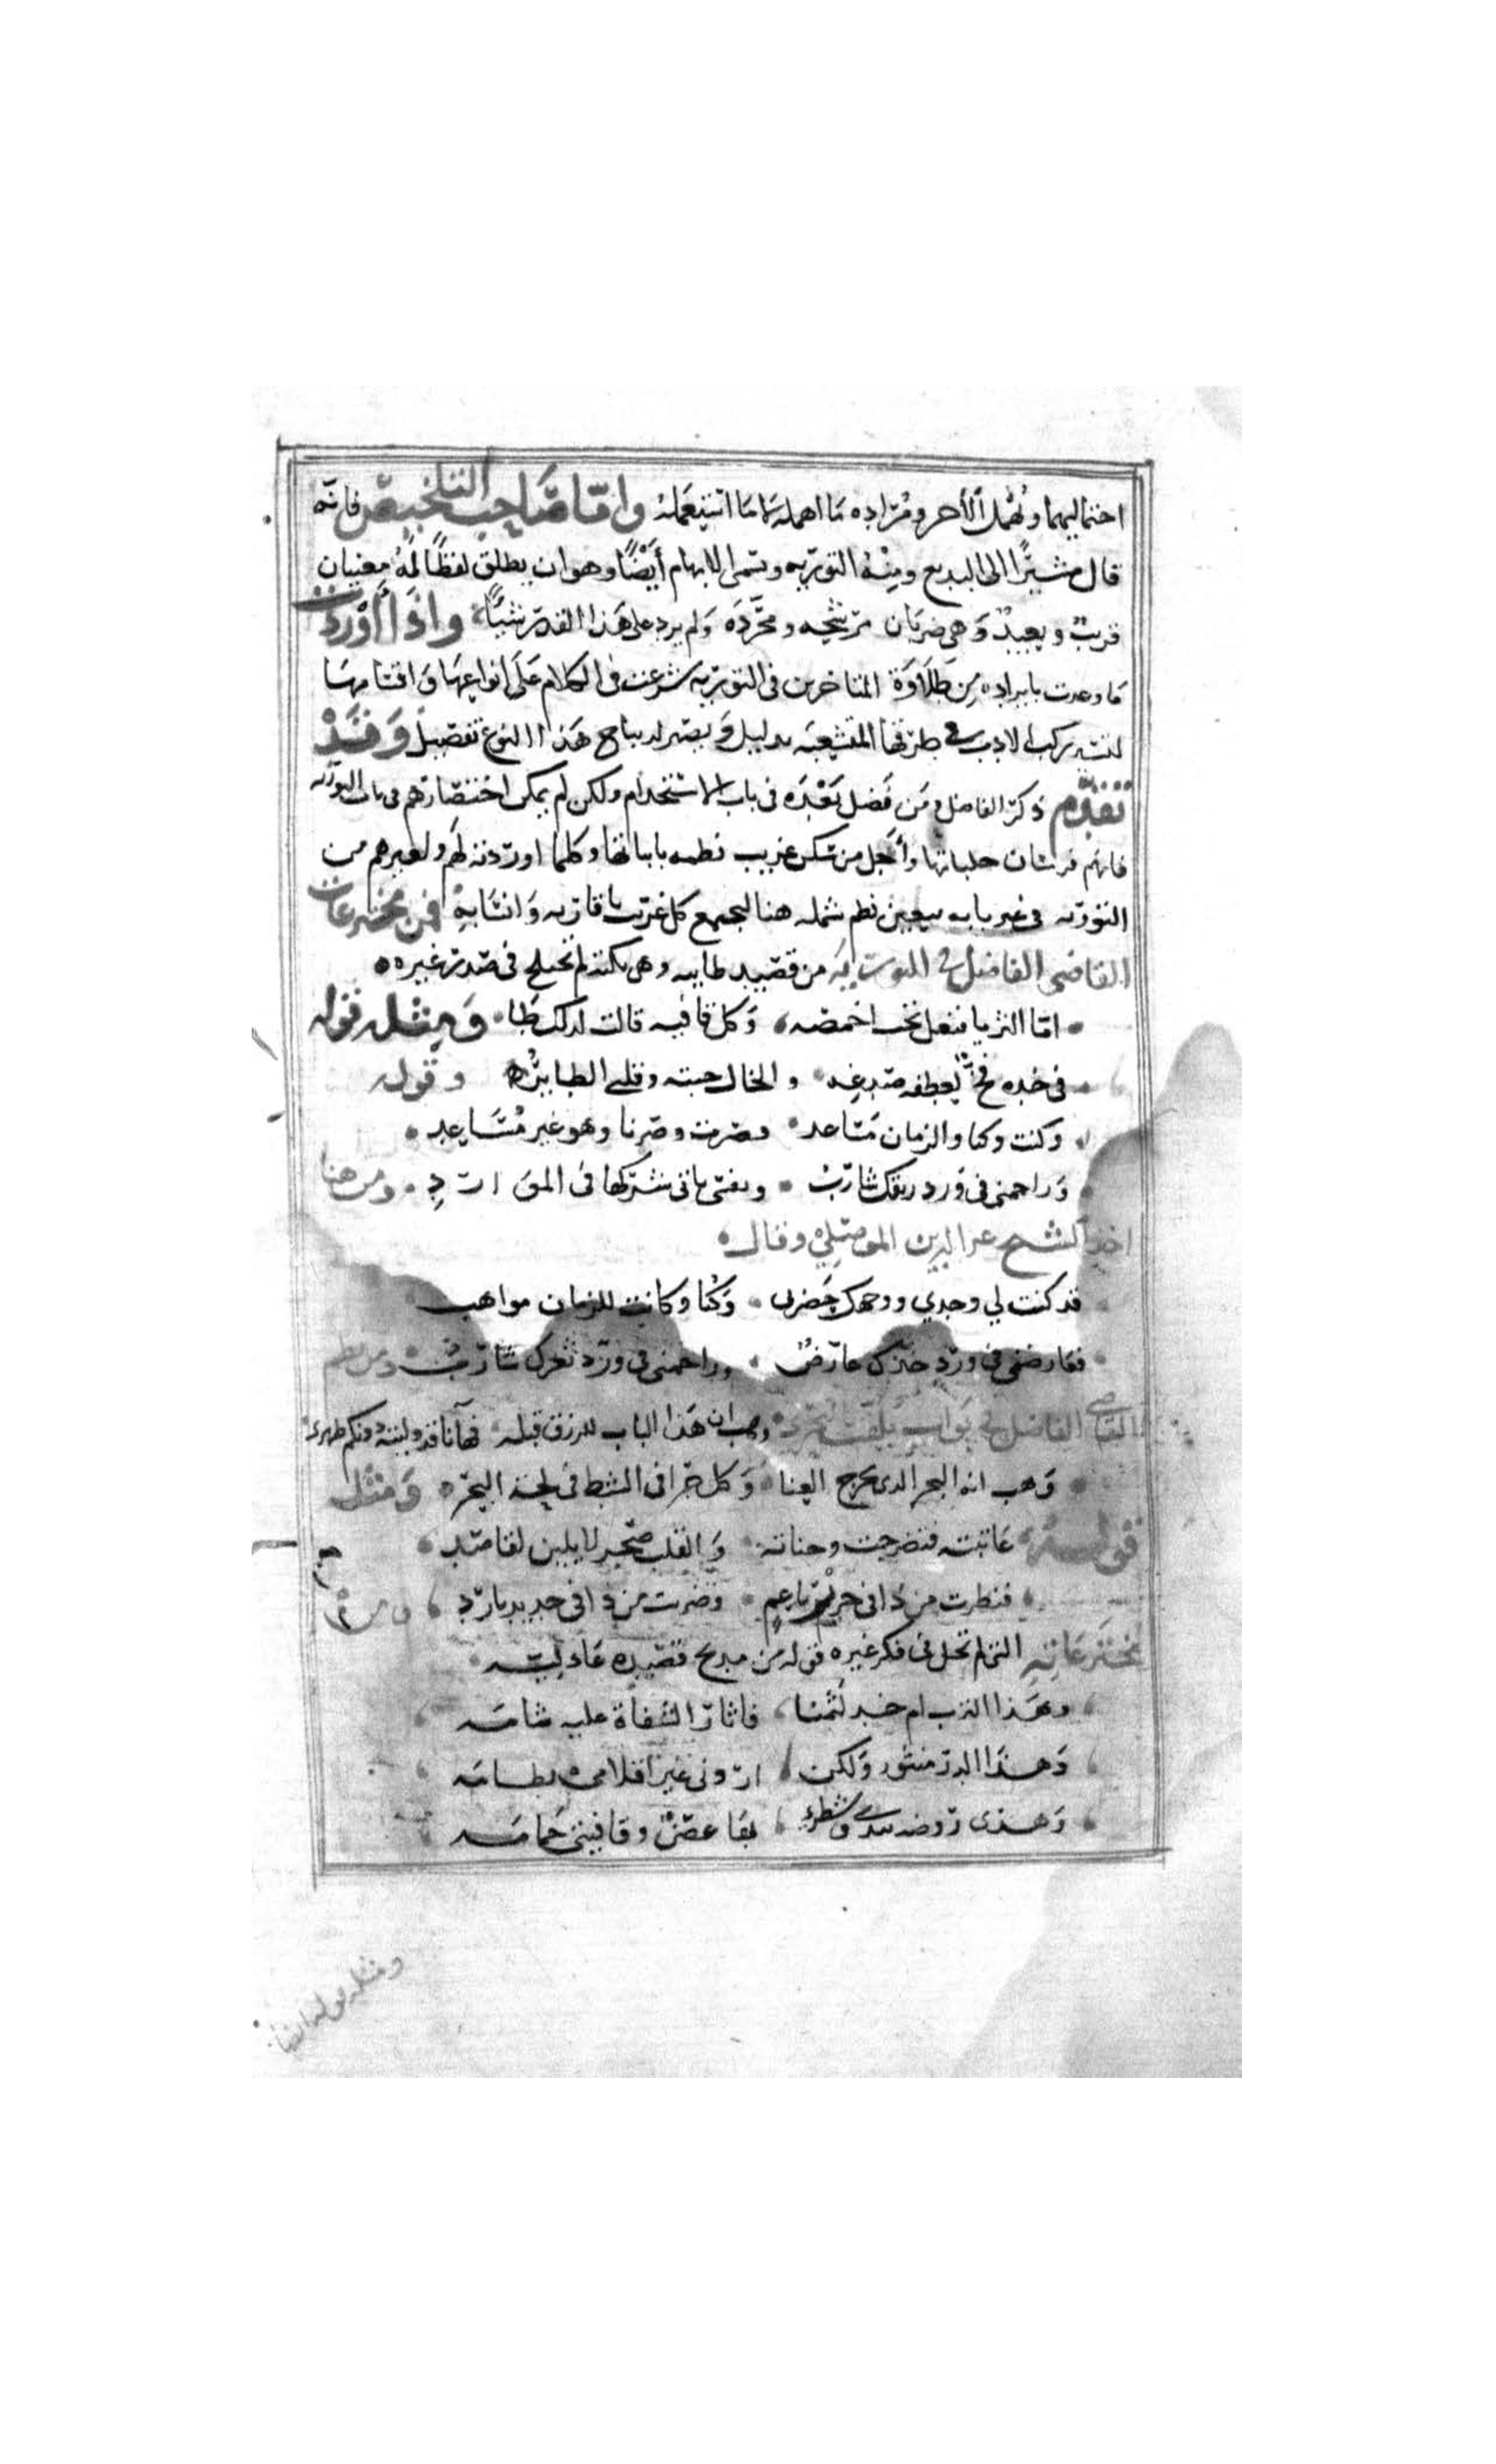 احتماليهما ويُهمل الأخر ومراده ما اهمله لا ما استعمله واما صاحب التلخيص فانه
قال مشيرًا الى البديع ومنه التوريه وتسمى الايهام أيضًا وهو ان يطلق لفظًا له معنيان
قريب وبعيد وهي ضربان مرشحه ومجرده ولم يرد على هذا القدر شيئًا واذا أوردت
ما وعدت بايراده من طلاوة المتاخرين في التوريه شرعت في الكلام على انواعها واقسامها
ركب الادب في طرقها المتشعبه بدليل ويصير لديباج هذا النوع تفصيل وقد
تقدم ذكر الفاضل ومن فضل بعده في باب الاستخدام ولكن لم يمكن اختصارهم في باب التوريه
فانهم فرسان حلباتها وأجل من سكن غريب نظمه باباتها وكلما اوردته لهم ولغيرهم من
التوريه في غير بابه تعين نظم شمله هنا ليجمع كل غريب باقاربه وانسابه فمن مخترعات
القاضي الفاضل في التوريه من قصيد طاييه وهي نكتة لم تختلج في صدر غيره
اما الثريا فنعل تحت اخمصه وكل قافيه قالت لذلك طا ومثله قوله
في خده فخ لعطفه صدغه والخال حبته وقلبي الطاير وقوله
وكنت وكنا والزمان مساعد فصرت وصرنا وهو غير مساعد
وراحمني في ورد ريقك شارب ونفسي تابى شركها في الموارد ومن هنا
اخذ الشيخ عز الدين الموصلي وقال
قد كنت لي وحدي ووجهك حضرتي وكنا وكانت للزمان مواهب
فعارضني في ورد خدك عارض وراحمني في ورد ثغرك شارب ومن نظم
القاضي الفاضل في بواب يلقب وهب ان هذا الباب للرزق قبله فها انا قد وليته دونكم ظهري
وهب انه البحر الذي يخرج الغنا وكل خرا في الشط في لحية البحر ومثل
قوله عاتبته فتضرجت وجناته والقلب صخر لا يلين لقاصد
فنظرت من ذا في حرير ناعم وضربت من ذا في حديد بارد ومن
مخترعاته التي لم تحل في فكر غيره قوله من مديح قصيده عادليه
وهذا الترب ام خد لثمنا فاثار الشفاة عليه شامه
وهذا الدر منثور ولكن اروني غير اقلامي نظامه
وهذي روضه تندى وسطري بها غصن وقافيتي حمامه
ومثله قوله ايضا